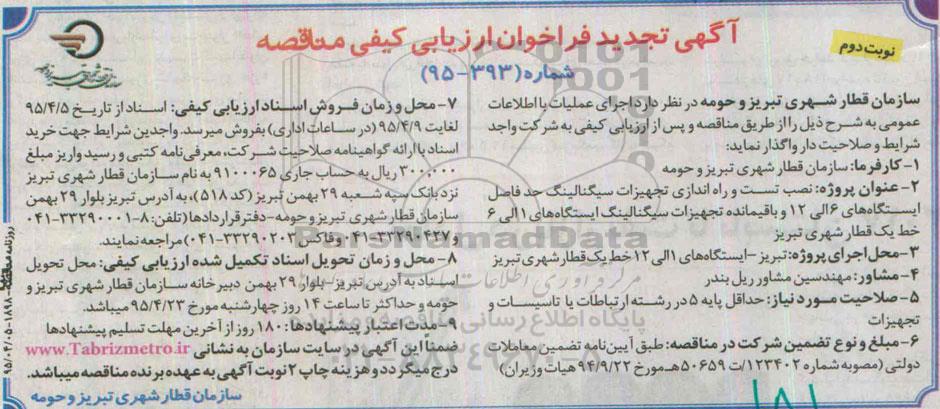 آگهی تجدید فراخوان ارزیابی کیفی مناقصه
نوبت دوم
شماره (۳۹۳-۹۵)
سازمان قطار شهری تبریز و حومه در نظر دارد اجرای عملیات با اطلاعات
عمومی به شرح ذیل را از طریق مناقصه و پس از ارزیابی کیفی به شرکت واجد
شرایط و صلاحیت دار واگذار نماید:
۱-کارفرما: سازمان قطار شهری تبریز و حومه
۲-عنوان پروژه: نصب تست و راه اندازی تجهیزات سیگنالینگ حد فاصل
ایستگاه‌های ۶ الی ۱۲ و باقیمانده تجهیزات سیگنالینگ ایستگاه‌های ۱ الی ۶
خط یک قطار شهری تبریز
۳-محل اجرای پروژه: تبریز -ایستگاه‌های ۱ الی ۱۲ خط یک قطار شهری تبریز
۴-مشاور: مهندسین مشاور ریل بندر
۵-صلاحیت مورد نیاز: حداقل پایه ۵ در رشته ارتباطات یا تاسیسات و
تجهیزات
۶-مبلغ و نوع تضمین شرکت در مناقصه: طبق آیین‌نامه تضمین معاملات
دولتی (مصوبه شماره ۱۲۳۴۰۲/ت ۵۰۶۵۹هـ مورخ ۹۴/۹/۲۲ هیأت وزیران)
۷-محل و زمان فروش اسناد ارزیابی کیفی: اسناد از تاریخ ۹۵/۴/۵
لغایت ۹۵/۴/۹ (در ساعات اداری) بفروش میرسد. واجدین شرایط جهت خرید
اسناد با ارائه گواهینامه صلاحیت شرکت، معرفی‌نامه کتبی و رسید واریز مبلغ
۳۰۰،۰۰۰ ریال به حساب جاری ۹۱۰۰۰۶۵ به نام سازمان قطار شهری تبریز
نزد بانک سپه شعبه ۲۹ بهمن تبریز (کد ۵۱۸)، به آدرس تبریز بلوار ۲۹ بهمن
سازمان قطار شهری تبریز و حومه-دفتر قراردادها (تلفن: ۸-۳۳۲۹۰۰۰۱-۰۴۱
و ۳۳۲۹۰۴۲۷-۰۴۱ و فاکس ۳۳۲۹۰۲۰۳-۰۴۱) مراجعه نمایند.
۸-محل و زمان تحویل اسناد تکمیل شده ارزیابی کیفی: محل تحویل
اسناد به آدرس تبریز-بلوار ۲۹ بهمن دبیرخانه سازمان قطار شهری تبریز و
حومه و حداکثر تا ساعت ۱۴ روز چهارشنبه مورخ ۹۵/۴/۲۳ میباشد.
۹-مدت اعتبار پیشنهادها: ۱۸۰ روز از آخرین مهلت تسلیم پیشنهادها
ضمناً این آگهی در سایت سازمان به نشانی www.Tabrizmetro.ir
درج میگردد و هزینه چاپ ۲ نوبت آگهی به عهده برنده مناقصه میباشد.
سازمان قطار شهری تبریز و حومه
ParsNamadData
پایگاه اطلاع رسانی مناقصه و مزایده
۱۸۱